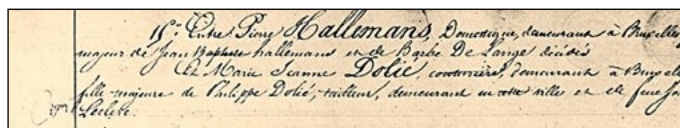 15.° Entre Pierre Hallemans, Domestique, demeurant à Bruxelles
majeur de Jean Baptiste hallemans et de Barbe De Lange décédés
Et Marie Jeanne Dolié, couturière, demeurant à Bruxelle
fille majeure de Philippe Dolié, tailleur, demeurant en cette ville et de feue
Leclerc.